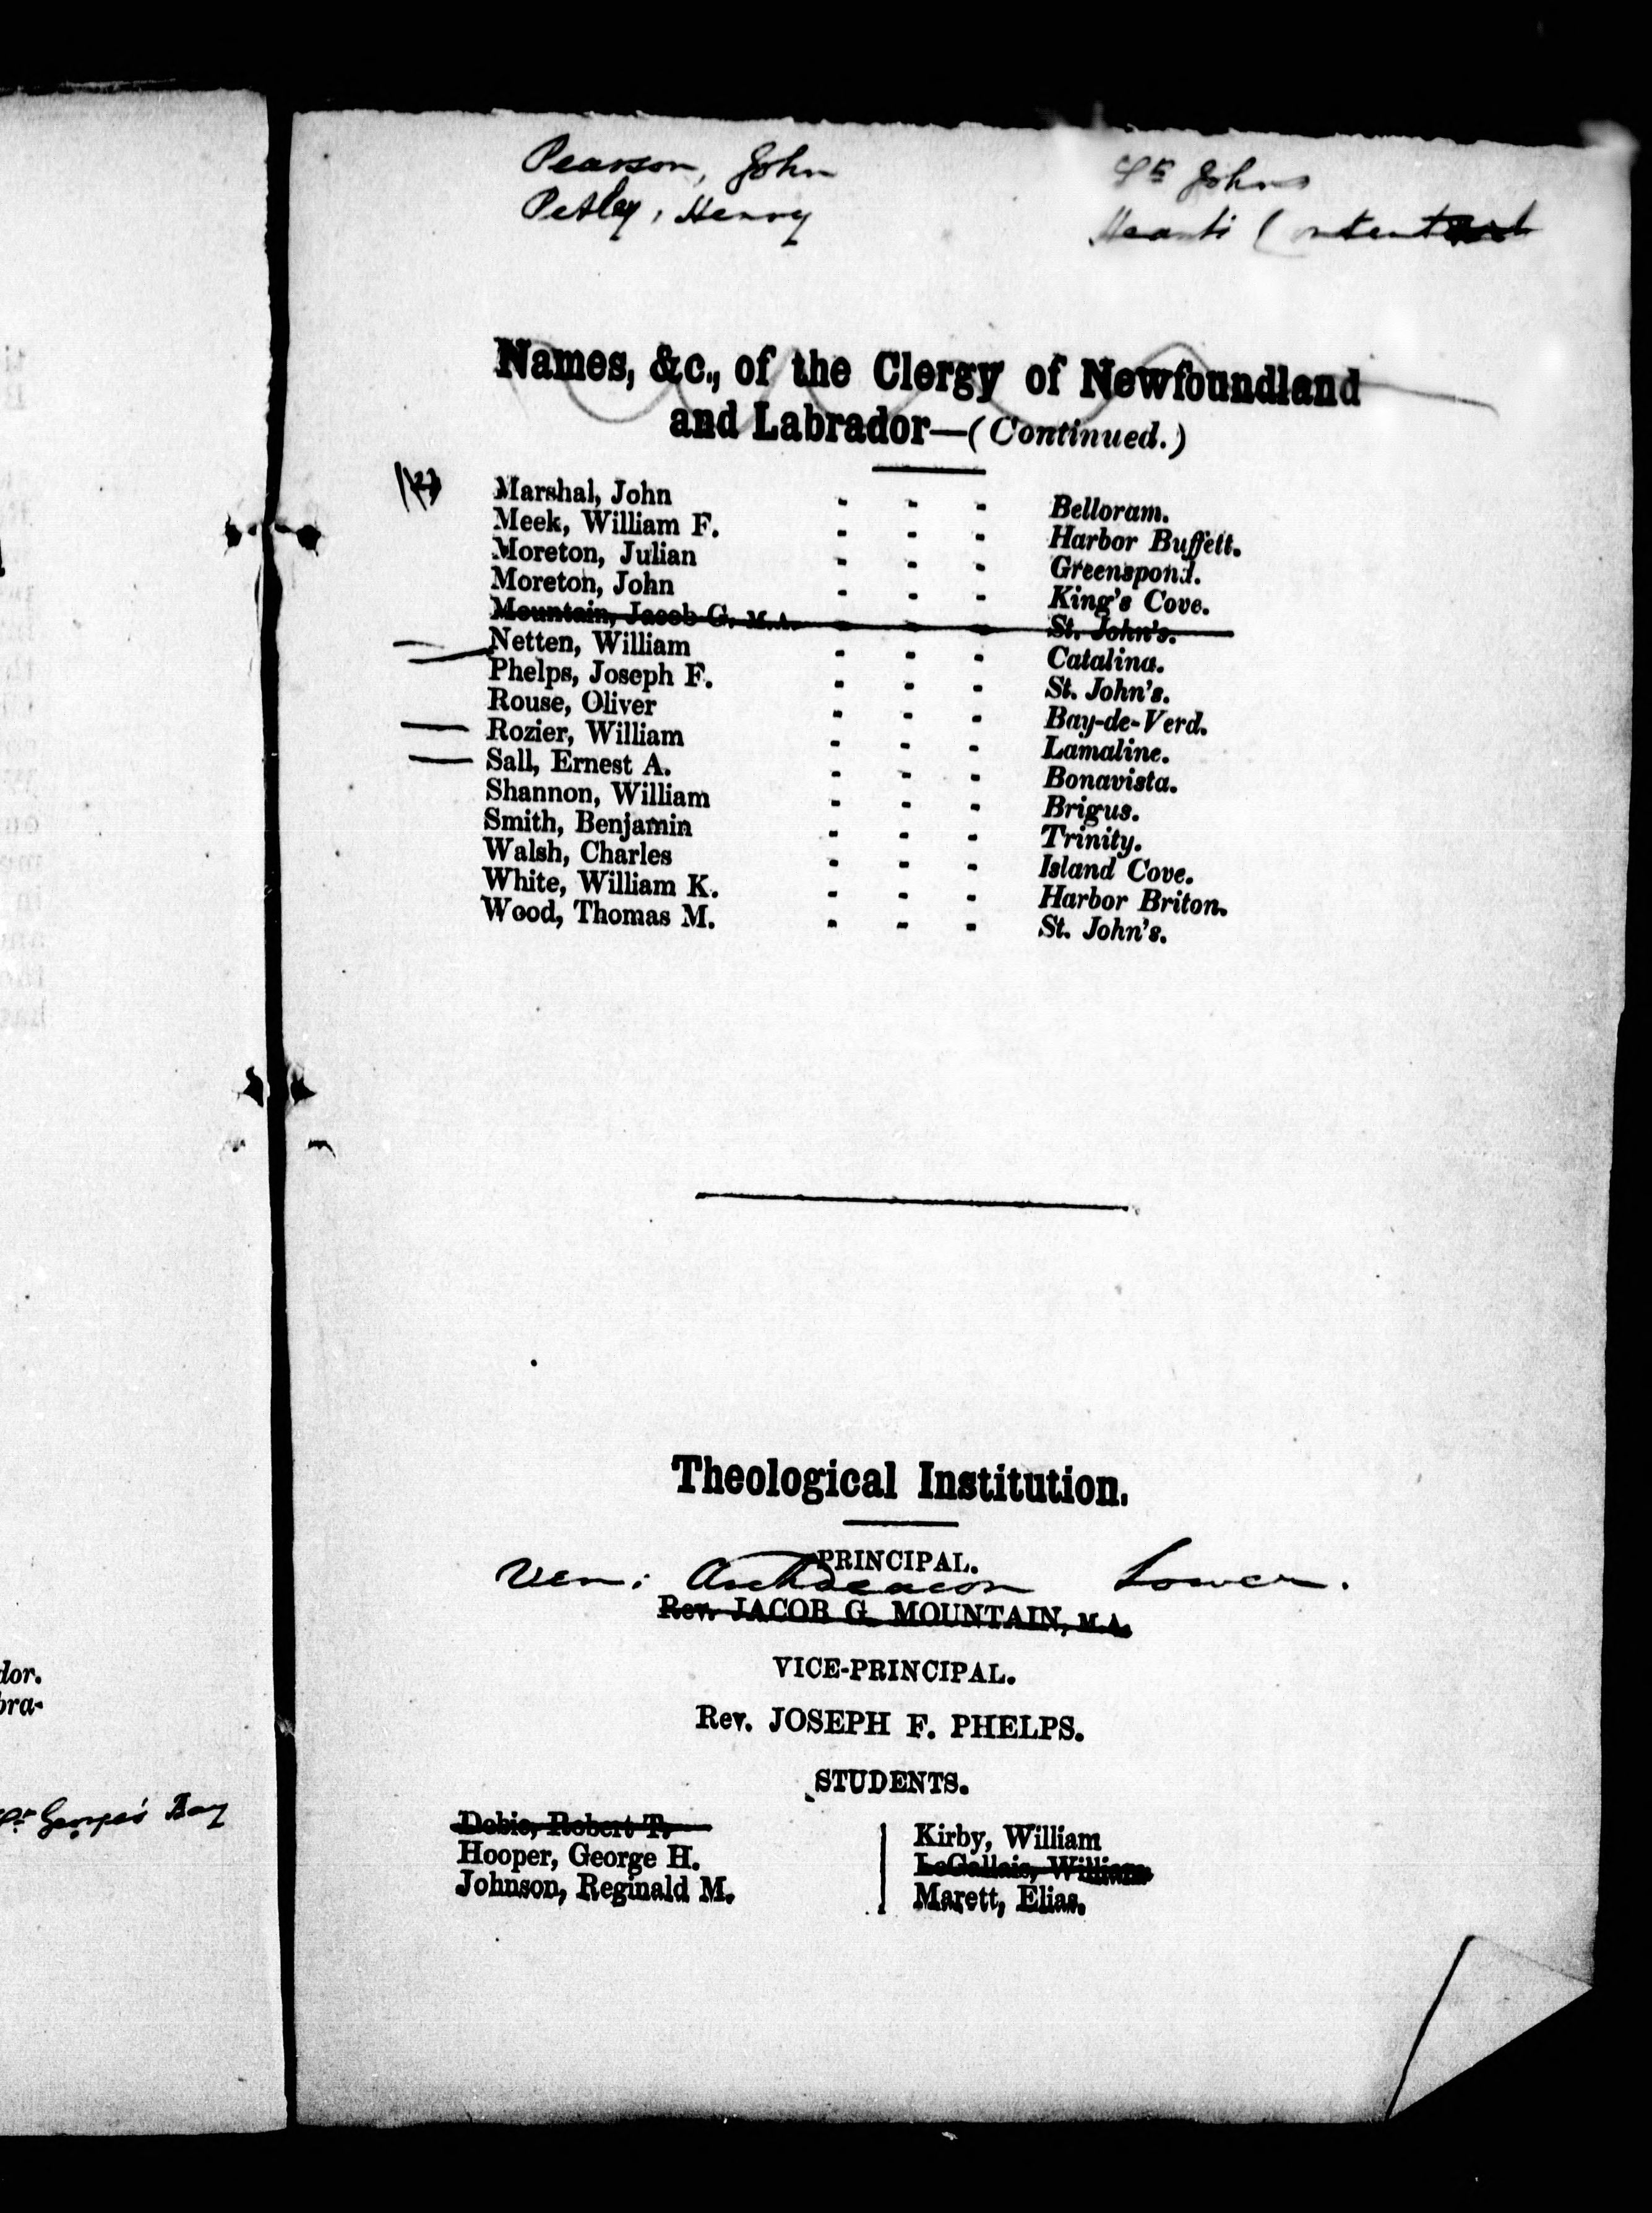 Pearson, John St Johns
Petley, Henry Heart's Content
Names, &c., of the Clergy of Newfoundland
and Labrador—(Continued.)
Marshal, John - - - Belloram.
Meek, William F. - - - Harbor Buffett.
Moreton, Julian - - - Greenspond.
Moreton, John - - - King's Cove.
Mountain, Jacob G. M.A. - - - St. John's.
Netten, William - - - Catalina.
Phelps, Joseph F. - - - St. John's.
Rouse, Oliver - - - Bay-de-Verd.
Rozier, William - - - Lamaline.
Sall, Ernest A. - - - Bonavista.
Shannon, William - - - Brigus.
Smith, Benjamin - - - Trinity.
Walsh, Charles - - - Island Cove.
White, William K. - - - Harbor Briton.
Wood, Thomas M. - - - St. John's.
Theological Institution.
PRINCIPAL.
Ven: Archdeacon Lower.
Rev. JACOB G. MOUNTAIN, M.A.
VICE-PRINCIPAL.
Rev. JOSEPH F. PHELPS.
STUDENTS.
Dobie, Robert T.
Hooper, George H.
Johnson, Reginald M.
Kirby, William
LeGallais, William
Marett, Elias.
dor.
bra-
St George's Bay